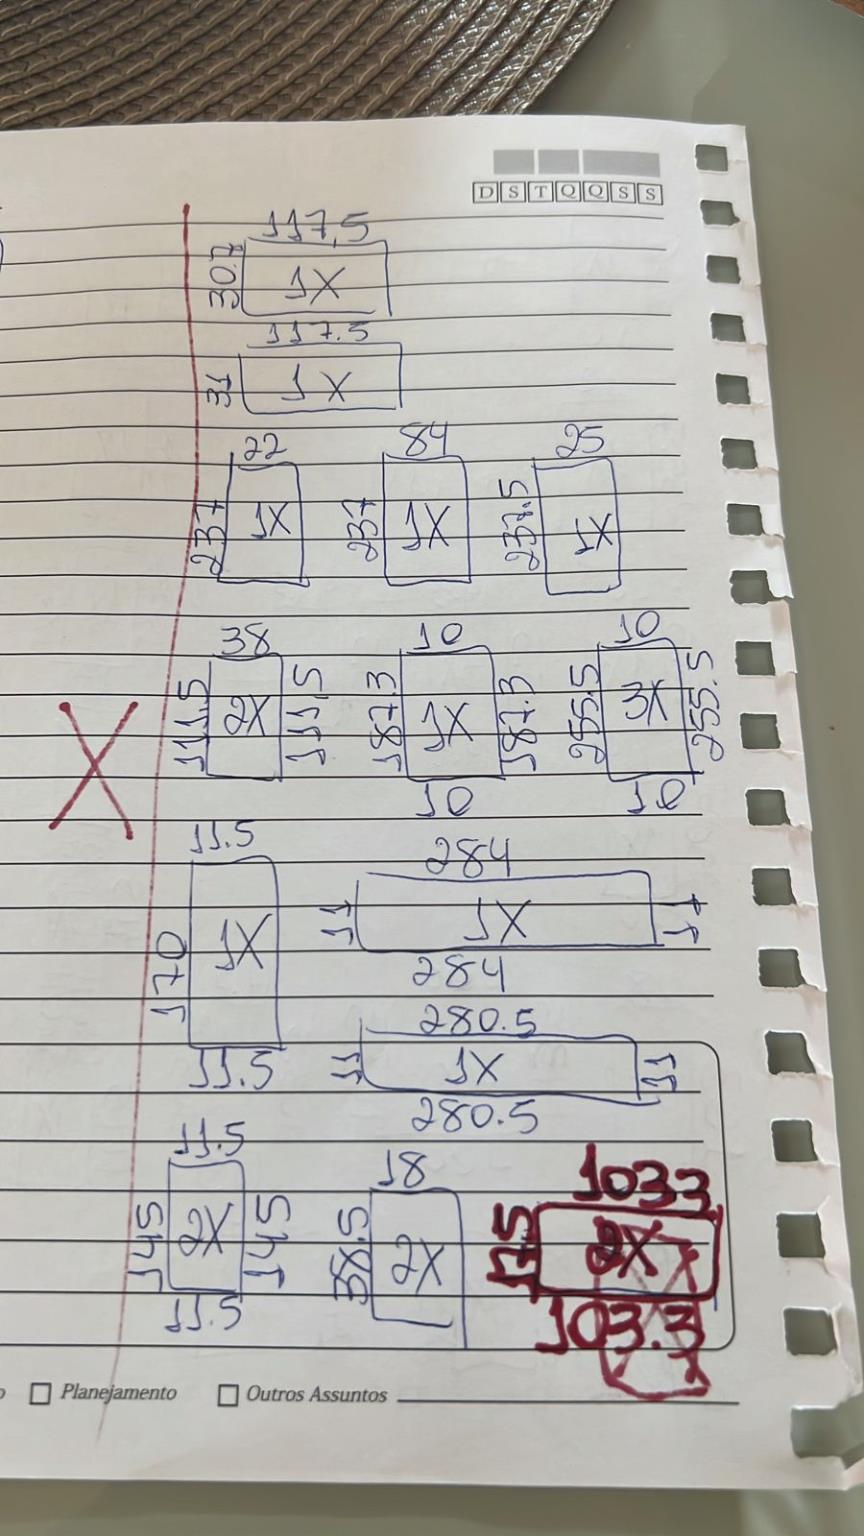 D S T Q Q S S
117,5
30.7 1X
117.5
31 1X
22 84 25
237 1X 237 1X 237.5 1X
38 10 10
111.5 2X 111,5 187.3 1X 187.3 255.5 3X 255.5
10 10
11.5 284
170 1X 11 1X 11
284
280.5
11.5 11 1X 11
280.5
11.5 18 1033
145 2X 145 38.5 2X 17.5 2X
11.5 103.3
Planejamento Outros Assuntos